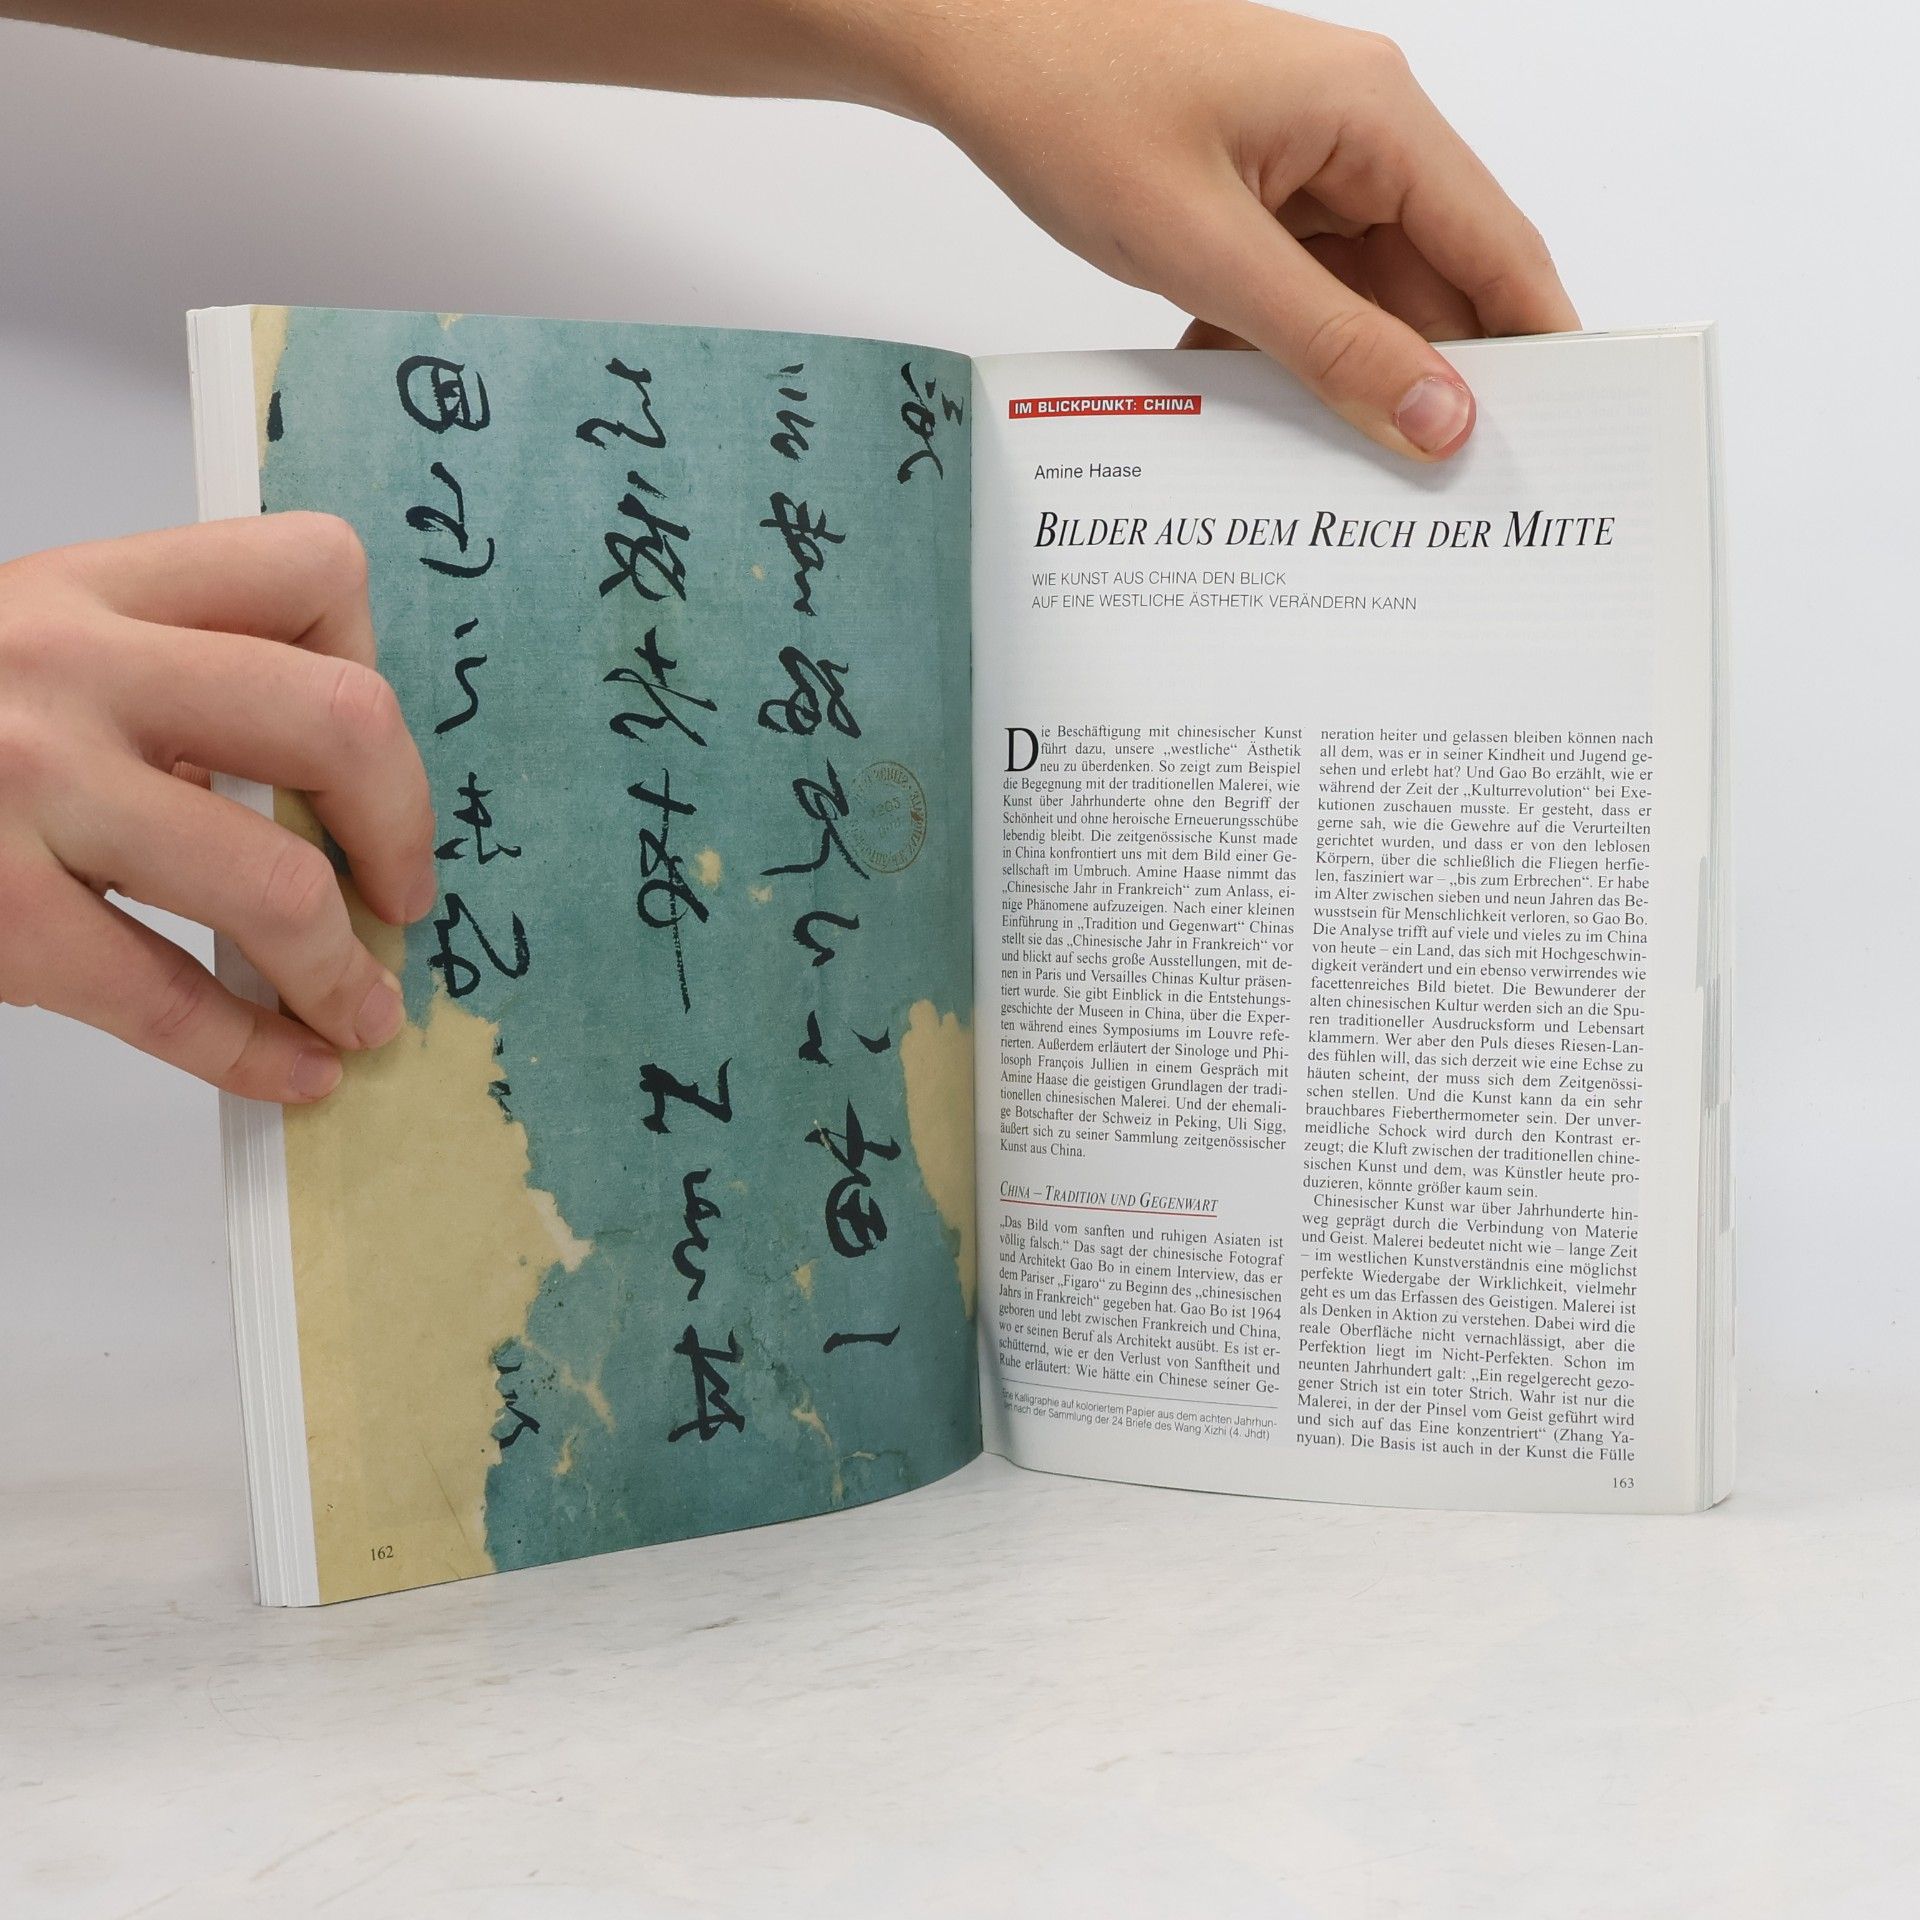 162
IM BLICKPUNKT: CHINA
Amine Haase
BILDER AUS DEM REICH DER MITTE
WIE KUNST AUS CHINA DEN BLICK
AUF EINE WESTLICHE ÄSTHETIK VERÄNDERN KANN
Die Beschäftigung mit chinesischer Kunst
führt dazu, unsere „westliche“ Ästhetik
neu zu überdenken. So zeigt zum Beispiel
die Begegnung mit der traditionellen Malerei, wie
Kunst über Jahrhunderte ohne den Begriff der
Schönheit und ohne heroische Erneuerungsschübe
lebendig bleibt. Die zeitgenössische Kunst made
in China konfrontiert uns mit dem Bild einer Ge-
sellschaft im Umbruch. Amine Haase nimmt das
„Chinesische Jahr in Frankreich“ zum Anlass, ei-
nige Phänomene aufzuzeigen. Nach einer kleinen
Einführung in „Tradition und Gegenwart“ Chinas
stellt sie das „Chinesische Jahr in Frankreich“ vor
und blickt auf sechs große Ausstellungen, mit de-
nen in Paris und Versailles Chinas Kultur präsen-
tiert wurde. Sie gibt Einblick in die Entstehungs-
geschichte der Museen in China, über die Exper-
ten während eines Symposiums im Louvre refe-
rierten. Außerdem erläutert der Sinologe und Phi-
losoph François Jullien in einem Gespräch mit
Amine Haase die geistigen Grundlagen der tradi-
tionellen chinesischen Malerei. Und der ehemali-
ge Botschafter der Schweiz in Peking, Uli Sigg,
äußert sich zu seiner Sammlung zeitgenössischer
Kunst aus China.
CHINA – TRADITION UND GEGENWART
„Das Bild vom sanften und ruhigen Asiaten ist
völlig falsch.“ Das sagt der chinesische Fotograf
und Architekt Gao Bo in einem Interview, das er
dem Pariser „Figaro“ zu Beginn des „chinesischen
Jahrs in Frankreich“ gegeben hat. Gao Bo ist 1964
geboren und lebt zwischen Frankreich und China,
wo er seinen Beruf als Architekt ausübt. Es ist er-
schütternd, wie er den Verlust von Sanftheit und
Ruhe erläutert: Wie hätte ein Chinese seiner Ge-
Eine Kalligraphie auf koloriertem Papier aus dem achten Jahrhun-
dert nach der Sammlung der 24 Briefe des Wang Xizhi (4. Jhdt)
neration heiter und gelassen bleiben können nach
all dem, was er in seiner Kindheit und Jugend ge-
sehen und erlebt hat? Und Gao Bo erzählt, wie er
während der Zeit der „Kulturrevolution“ bei Exe-
kutionen zuschauen musste. Er gesteht, dass er
gerne sah, wie die Gewehre auf die Verurteilten
gerichtet wurden, und dass er von den leblosen
Körpern, über die schließlich die Fliegen herfie-
len, fasziniert war – „bis zum Erbrechen“. Er habe
im Alter zwischen sieben und neun Jahren das Be-
wusstsein für Menschlichkeit verloren, so Gao Bo.
Die Analyse trifft auf viele und vieles zu im China
von heute – ein Land, das sich mit Hochgeschwin-
digkeit verändert und ein ebenso verwirrendes wie
facettenreiches Bild bietet. Die Bewunderer der
alten chinesischen Kultur werden sich an die Spu-
ren traditioneller Ausdrucksform und Lebensart
klammern. Wer aber den Puls dieses Riesen-Lan-
des fühlen will, das sich derzeit wie eine Echse zu
häuten scheint, der muss sich dem Zeitgenössi-
schen stellen. Und die Kunst kann da ein sehr
brauchbares Fieberthermometer sein. Der unver-
meidliche Schock wird durch den Kontrast er-
zeugt; die Kluft zwischen der traditionellen chine-
sischen Kunst und dem, was Künstler heute pro-
duzieren, könnte größer kaum sein.
Chinesischer Kunst war über Jahrhunderte hin-
weg geprägt durch die Verbindung von Materie
und Geist. Malerei bedeutet nicht wie – lange Zeit
– im westlichen Kunstverständnis eine möglichst
perfekte Wiedergabe der Wirklichkeit, vielmehr
geht es um das Erfassen des Geistigen. Malerei ist
als Denken in Aktion zu verstehen. Dabei wird die
reale Oberfläche nicht vernachlässigt, aber die
Perfektion liegt im Nicht-Perfekten. Schon im
neunten Jahrhundert galt: „Ein regelgerecht gezo-
gener Strich ist ein toter Strich. Wahr ist nur die
Malerei, in der der Pinsel vom Geist geführt wird
und sich auf das Eine konzentriert“ (Zhang Ya-
nyuan). Die Basis ist auch in der Kunst die Fülle
163